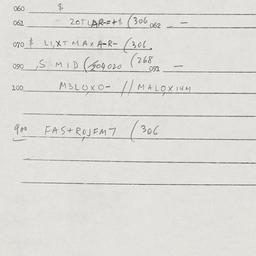 060 $
061 - 20TLAR=+$ (306 062 -
070 $ LIXTMAXA-R- (306
090 ,S MID (504020 (268 091 -
100 M3LOXO- // MALOXIUM
900 FAS+ROJFM7 (306